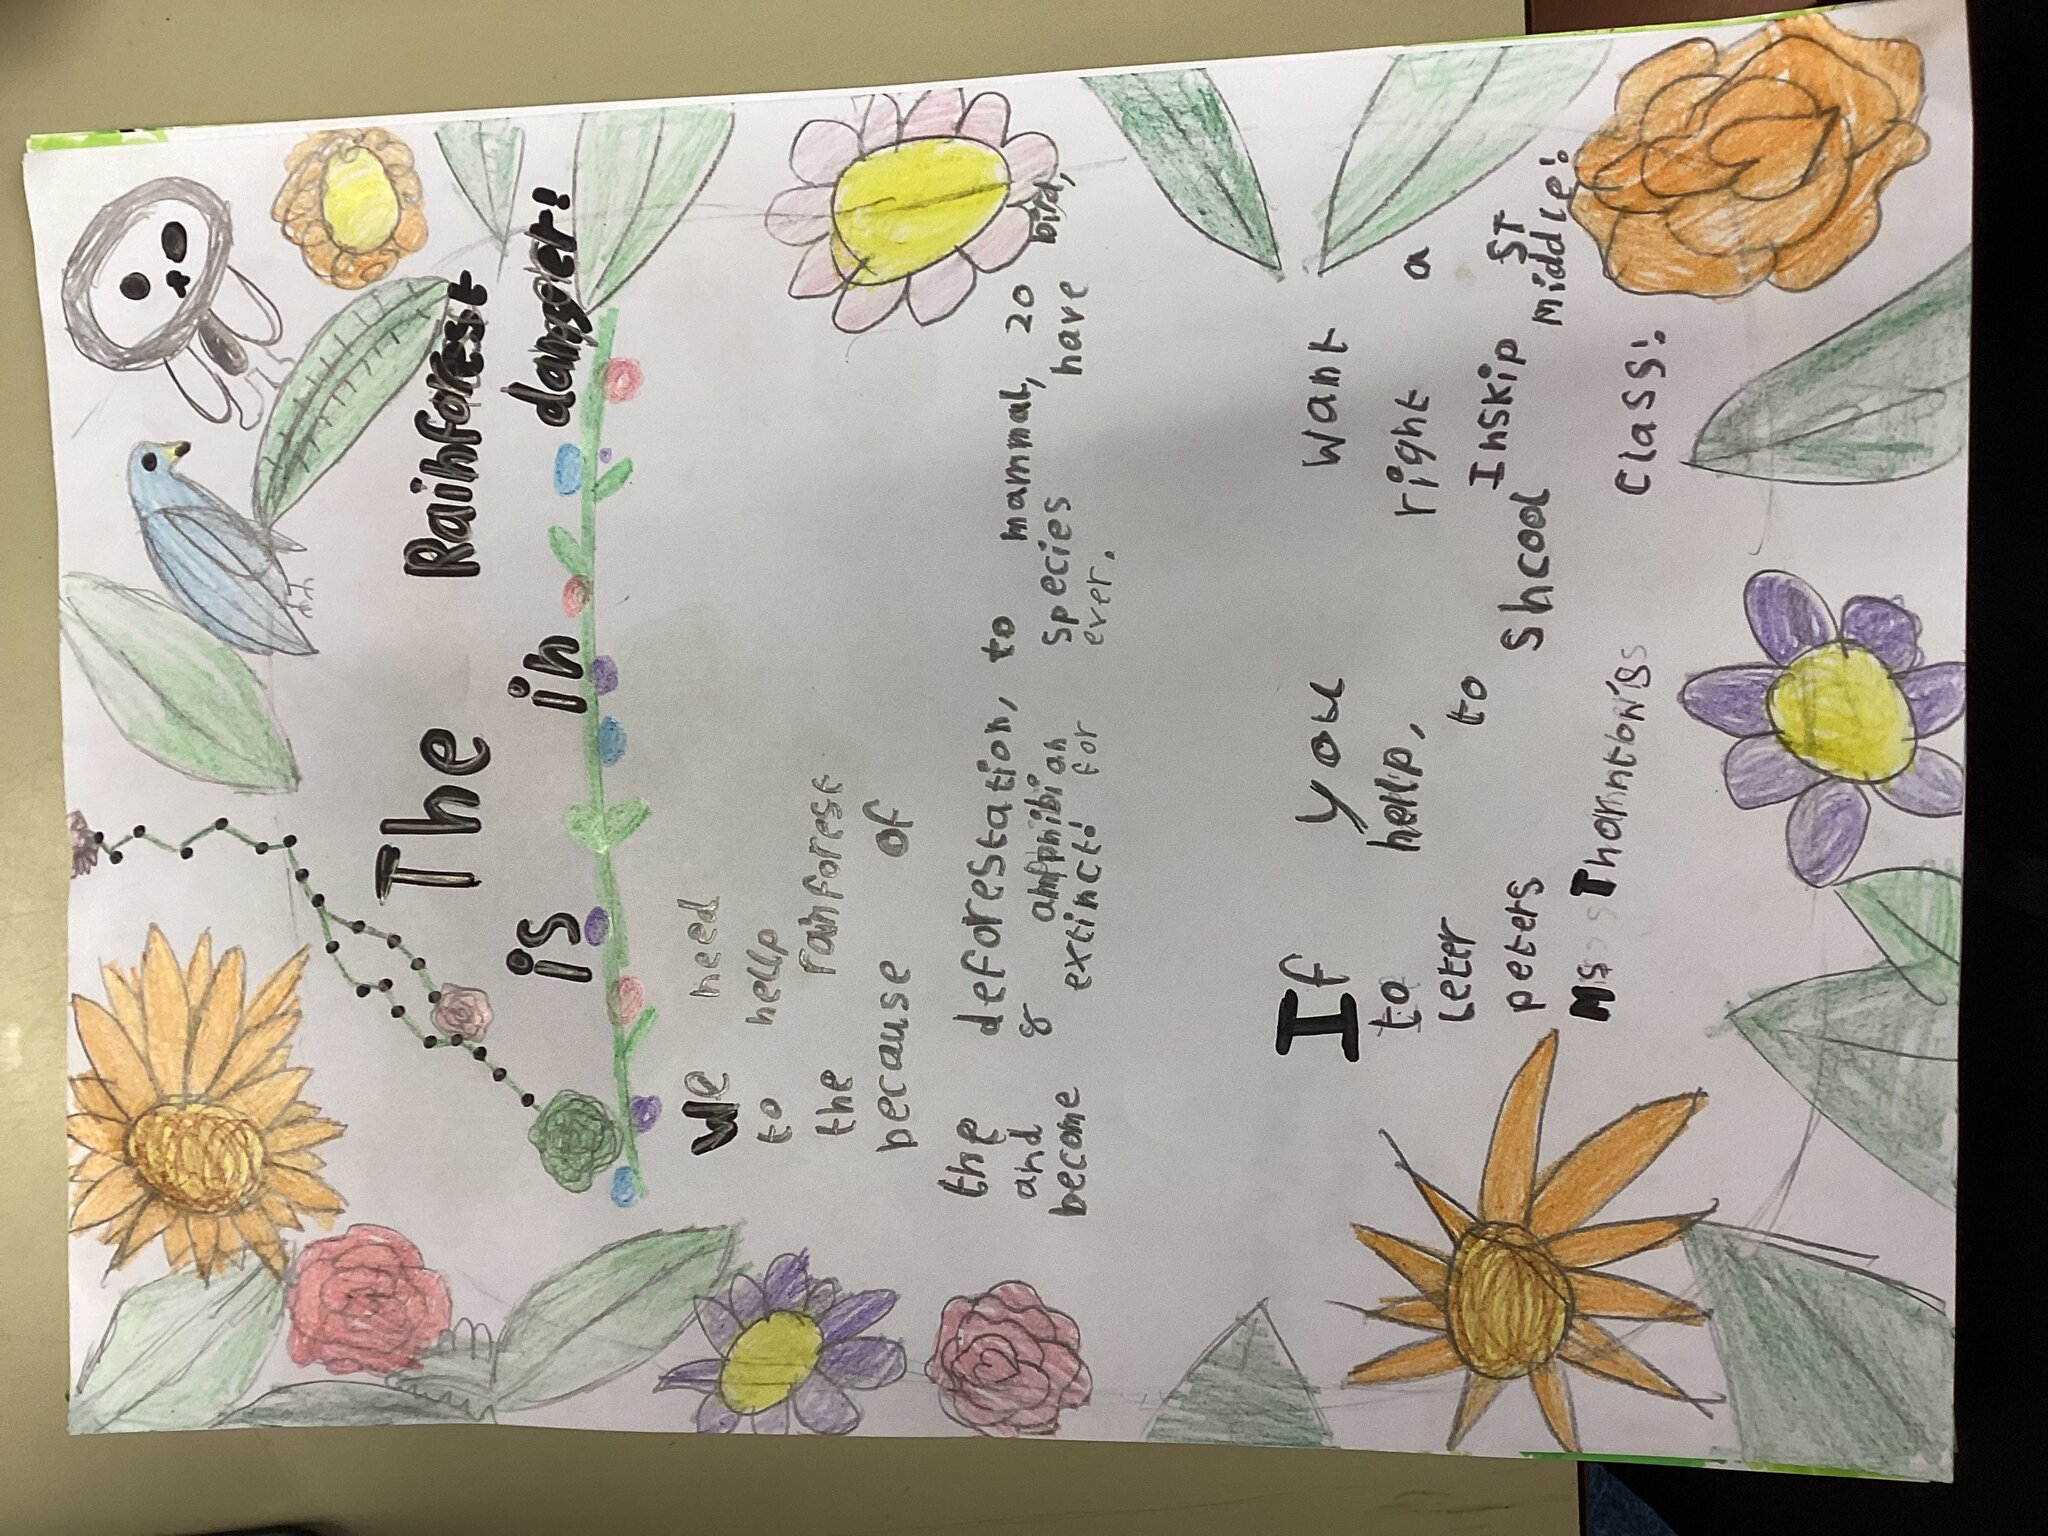 The Rainforest
is in danger!
We need
to hellp
the rainforest
because of
the deforestation, to mammal, 20 bird,
and 8 amphibian species have
become extinct! for ever.
If you want
to help, right a
leter to Inskip ST
peters Shcool middle!
Ms Thorntons Class!